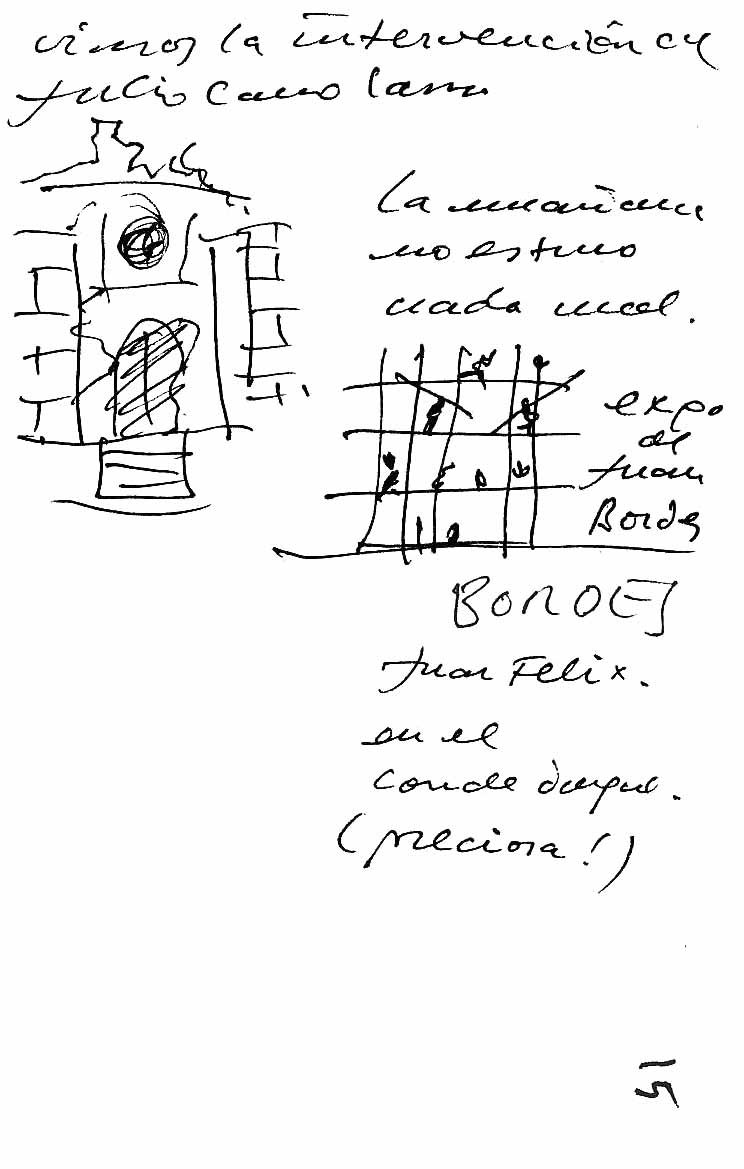 vimos la intervención de
Julio Cano Lasso
La mañana
no estuvo
nada mal.
expo
de
Juan
Bordes
BORDES
Juan Felix.
en el
Conde duque.
(preciosa!)
15